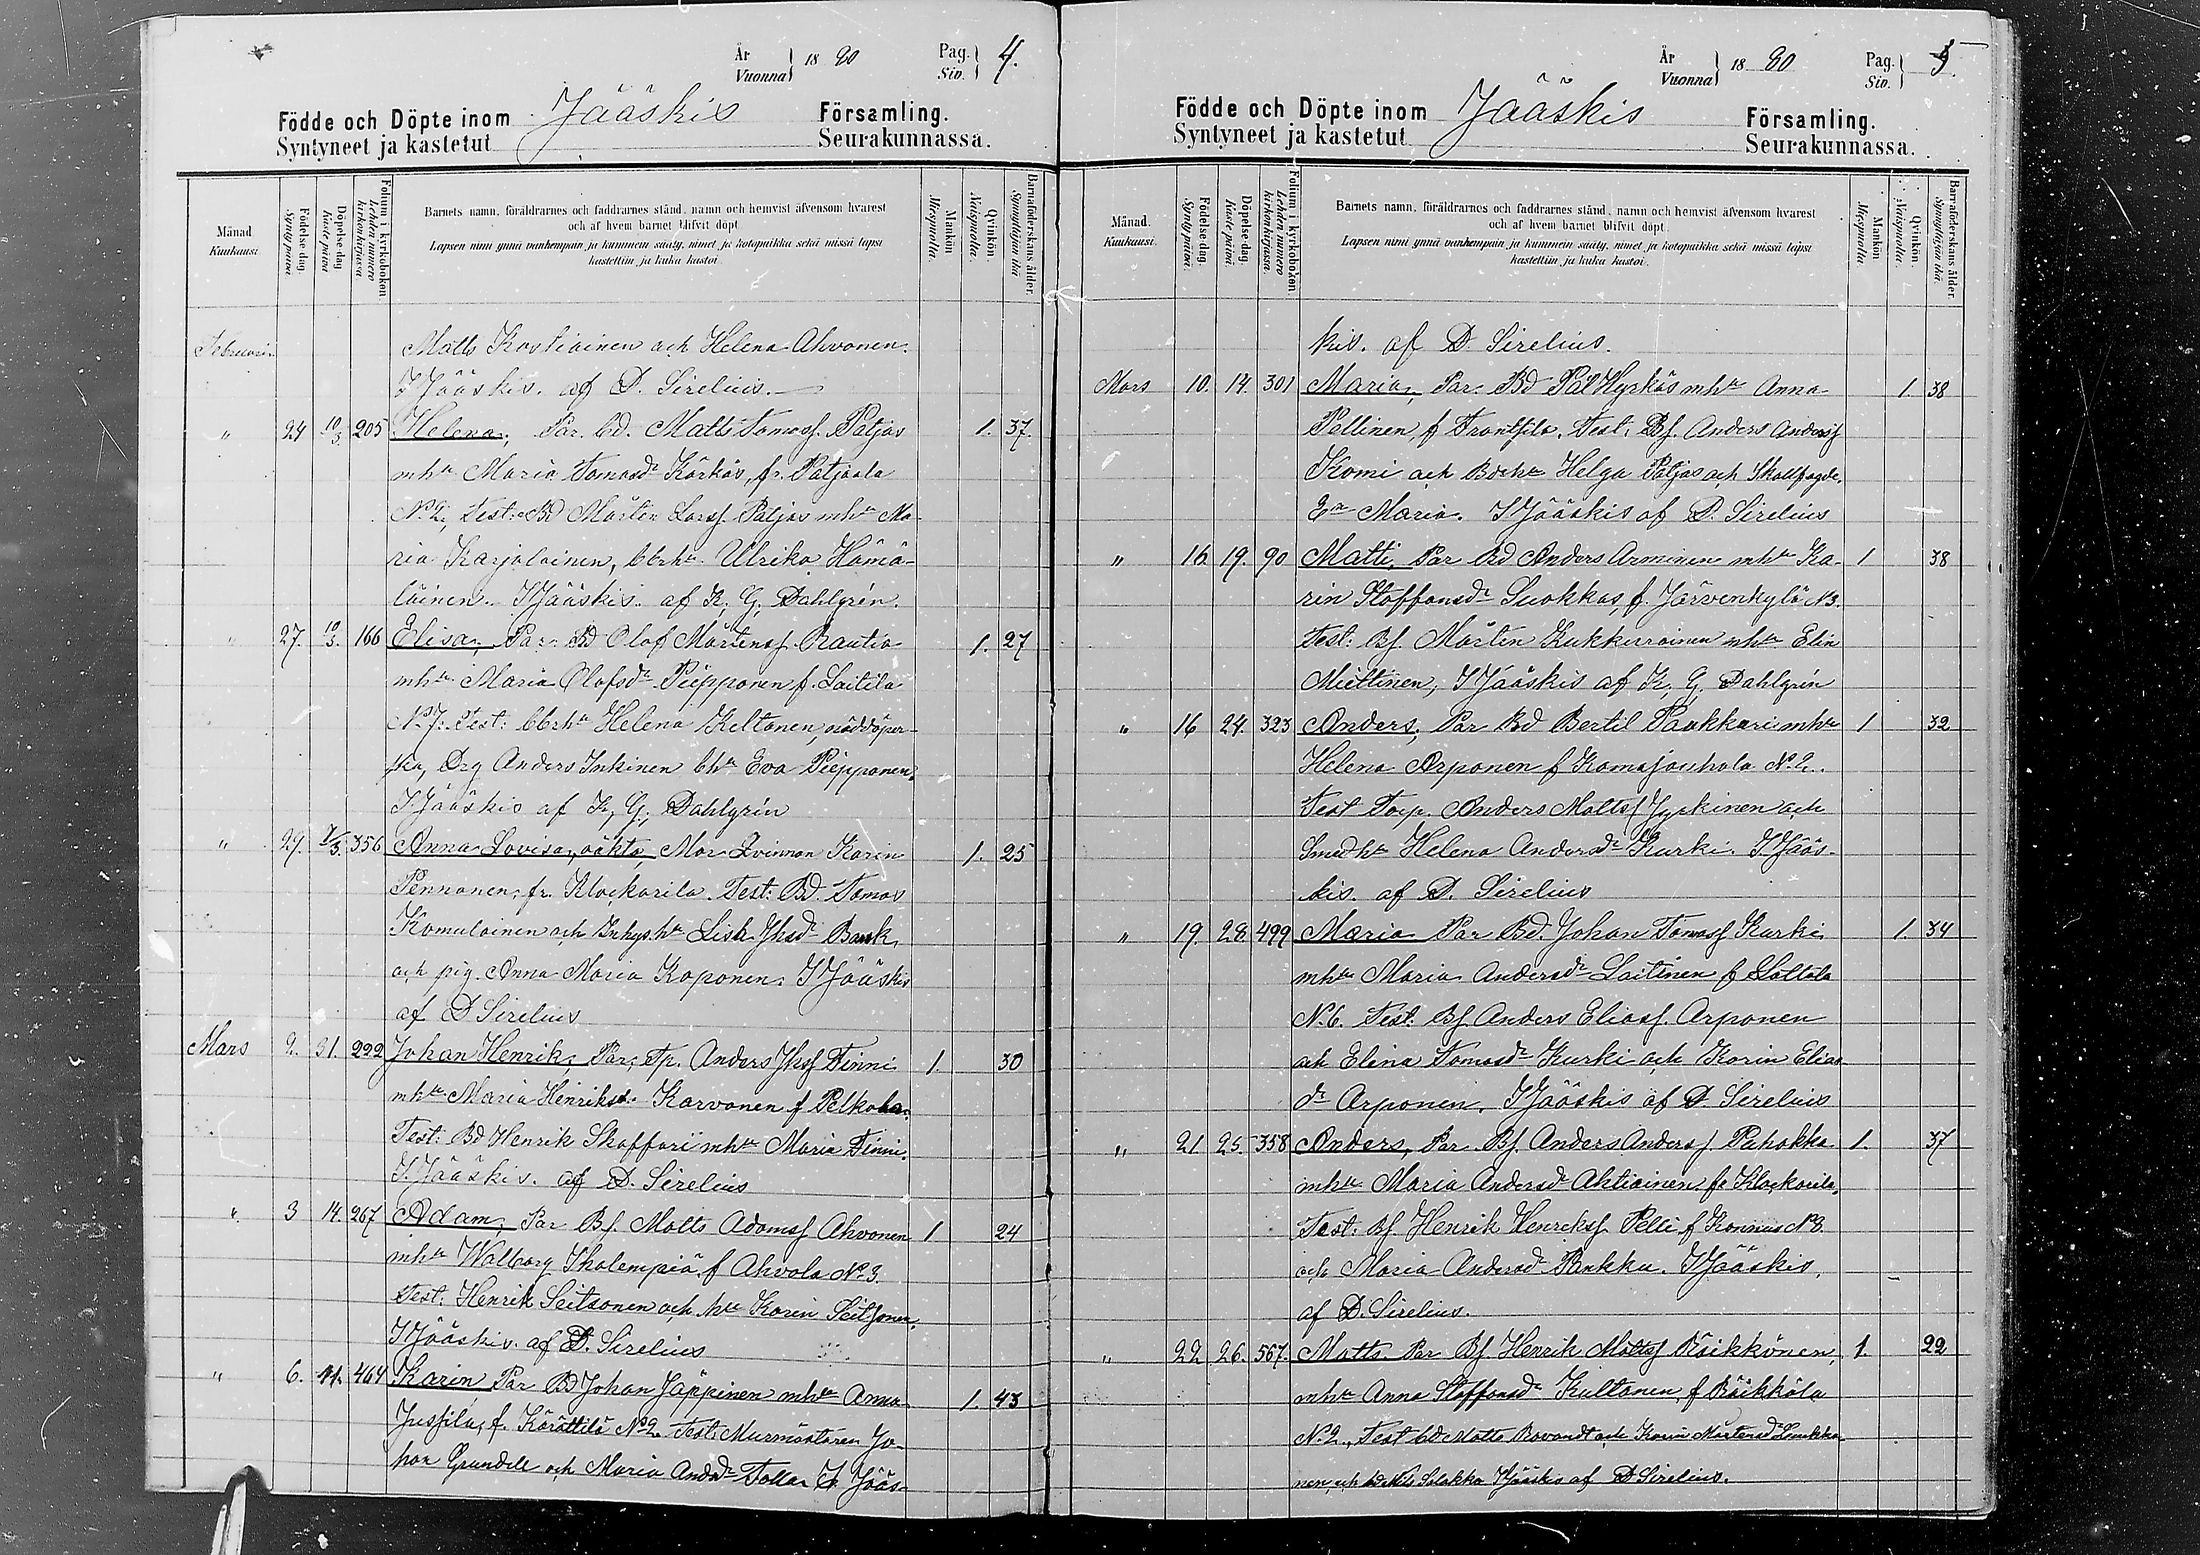 År
Vuonna } 18 80 Pag. Siv. } 4.
Födde och Döpte inom Jääskis Församling.
Syntyneet ja kastetut Seurakunnassa.
Månad. Kuukausi.
Födelsedag. Syntypäivä.
Döpelsedag. Kastepäivä.
Folium i kyrkoboken Lehden numero kirkonkirjassa.
Barnets namn, föräldrarnes och faddrarnes stånd, namn och hemvist äfvensom hvarest
och af hvem barnet blifvit döpt.
Lapsen nimi ynnä vanhempain ja kummein sääty, nimet ja kotopaikka sekä missä lapsi
kastettiin ja kuka kastoi.
Mankön. Miespuolta.
Qvinkön. Naispuolta.
Barnaföderskans ålder. Synnyttäjän ikä.
Februari Matts Kostiainen och Helena Ahvonen.
I Jääskis. af D. Sirelius.
" 24 10/3 205 Helena, Par. bd. Matts Tomass. Patjas 1. 37.
mhu Maria Tomasdr Kärkäs, fr. Patjala
No 2, Test: Bd Mårten Larss. Patjas mhu Ma-
ria Karjalainen, bbrhu Ulrika Hämä-
läinen. I Jääskis. af K. G. Dahlgrén.
" 27. 10/3. 166 Elisa, Par: Bd Olof Mårtenss. Rautio 1. 27
mhu Maria Olofsdr Piepponen f. Laitila
No 7. Test: bbrhu Helena Kiltonen, nöddöper-
ska, Drg Anders Inkinen bhu Eva Piepponen,
I Jääskis af K. G. Dahlgrén
" 29. 7/3. 356 Anna Lovisa, oäkta Mor Qvinnan Karin 1. 25
Pennanen, fr. Klockarila. Test: Bd. Tomas
Komulainen och Inhys.hu Lisa Jhsdr Bank,
och pig. Anna Maria Koponen. I Jääskis
af D Sirelius
Mars 2. 31. 222 Johan Henrik, Par, Tp. Anders Jhss Finni 1. 30
mhu Maria Henriksd. Karvonen f Pelkola.
Test: Bd Henrik Skaffari mhu Maria Finni.
I Jääskis. af D. Sirelius
" 3 14. 267 Adam, Par Bf. Matts Adamss Ahvonen 1 24
mhu Walborg Ihalempiä, f Ahvola No 3
Test. Henrik Seitsonen och hu Karin Seitsonen,
I Jääskis. af D. Sirelius
" 6. 11. 464 Karin Par Bd Johan Jäppinen mhu Anna 1. 43
Jussila, f. Kärättilä No 2. Test: Murmästaren Jo-
han Grundell och Maria Andsdr Tolla I Jääs-
År
Vuonna } 18 80 Pag. Siv. } 5.
Födde och Döpte inom Jääskis Församling.
Syntyneet ja kastetut Seurakunnassa.
Månad. Kuukausi.
Födelsedag. Syntypäivä.
Döpelsedag. Kastepäivä.
Folium i kyrkoboken Lehden numero kirkonkirjassa.
Barnets namn, föräldrarnes och faddrarnes stånd, namn och hemvist äfvensom hvarest
och af hvem barnet blifvit döpt.
Lapsen nimi ynnä vanhempain ja kummein sääty, nimet ja kotopaikka sekä missä lapsi
kastettiin ja kuka kastoi.
Mankön. Miespuolta.
Qvinkön. Naispuolta.
Barnaföderskans ålder. Synnyttäjän ikä.
kis. af D. Sirelius.
Mars 10. 14. 301 Maria, Par. Bd Pål Hyrkäs mhu Anna 1. 38
Pallinen, f Frantsila. Test. Bf. Anders Anderss
Komi och Bdehu Helga Patjas och Skallfogde,
Ea Maria. I Jääskis af D. Sirelius
" 16. 19. 90 Matti, Par Bd Anders Arminen mhu Ka- 1 38
rin Staffansdr Suokkas, f. Järvenkylä N3.
Test: Bf. Mårten Kukkurainen mhu Elin
Miettinen, I Jääskis af K. G. Dahlgrén
" 16 24. 323 Anders, Par Bd Bertil Paukkari mhu 1 32
Helena Arponen f Kamajouhola No 2.
Test Torp. Anders Matts Jyrkinen och
Smedhu Helena Andersdr Kurki. I Jääs-
kis. af D. Sirelius
" 19. 28. 499 Maria Par Bd. Johan Tomass Kurki 1. 34
mhu Maria Andersdr Laitinen f Lottola
N.6. Test: Bf Anders Eliass. Arponen
och Elina Tomasdr Kurki och Karin Elias
dr Arponen. I Jääskis af D. Sirelius
" 21 25. 358 Anders, Par Bf. Anders Anderss. Puhakka 1. 37
mhu Maria Andersdr Ahtiainen fr Klockarila.
Test: Bf Henrik Henrikss. Pelli f Konnus N 8.
och Maria Andersdr Pukka. I Jääskis.
af D. Sirelius.
" 22 26. 567. Matts Par Bf. Henrik Mattss Räikkönen, 1. 22
mhu Anna Staffansdr Kiiltonen, f Räikkölä
No 2., Test bd Matts Rovandt och Karin Mårtensdr Laukka-
nen, och bd Nils Salakka I Jääskis af D Sirelius.